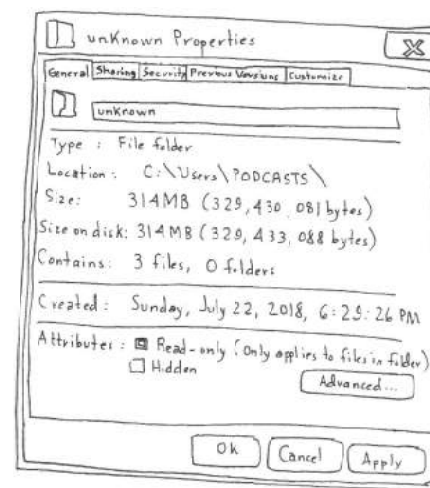 unknown Properties
General Sharing Security Previous Versions Customize
unknown
Type : File folder
Location : C:\Users\PODCASTS\
Size: 314MB (329,430,081 bytes)
Size on disk: 314MB (329,433,088 bytes)
Contains: 3 files, 0 folders
Created : Sunday, July 22, 2018, 6:29:26 PM
Attributes : Read-only (Only applies to files in folder)
Hidden
Advanced...
Ok Cancel Apply